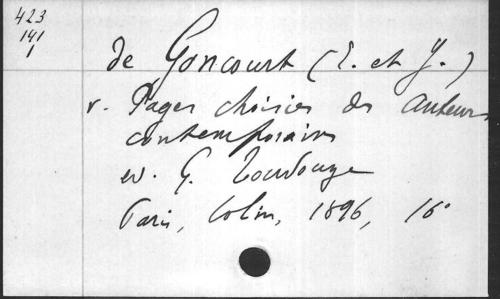 423
141
1
de Goncourt (E. et J.)
v. Pages choisies des Auteurs
contemporains
ed. G. Toudouze
Paris, Colin, 1896, 16°